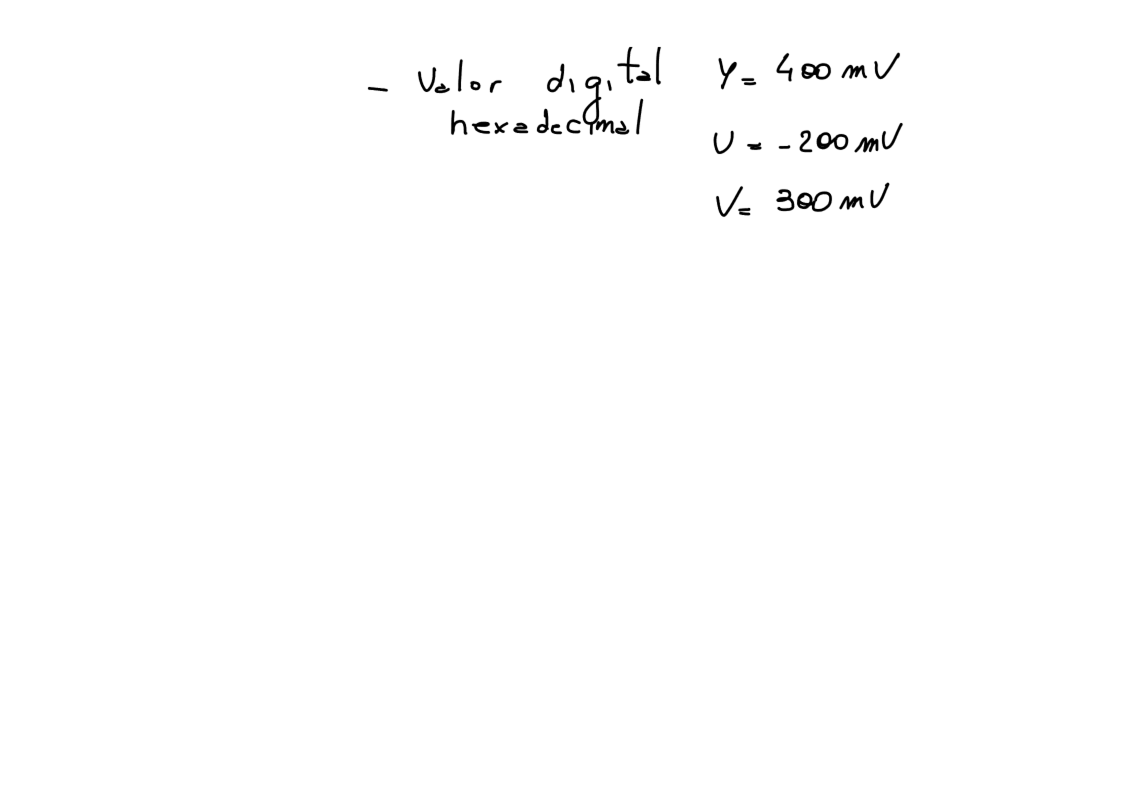 - Valor digital
hexadecimal
Y= 400 mV
U = -200 mV
V= 300 mV